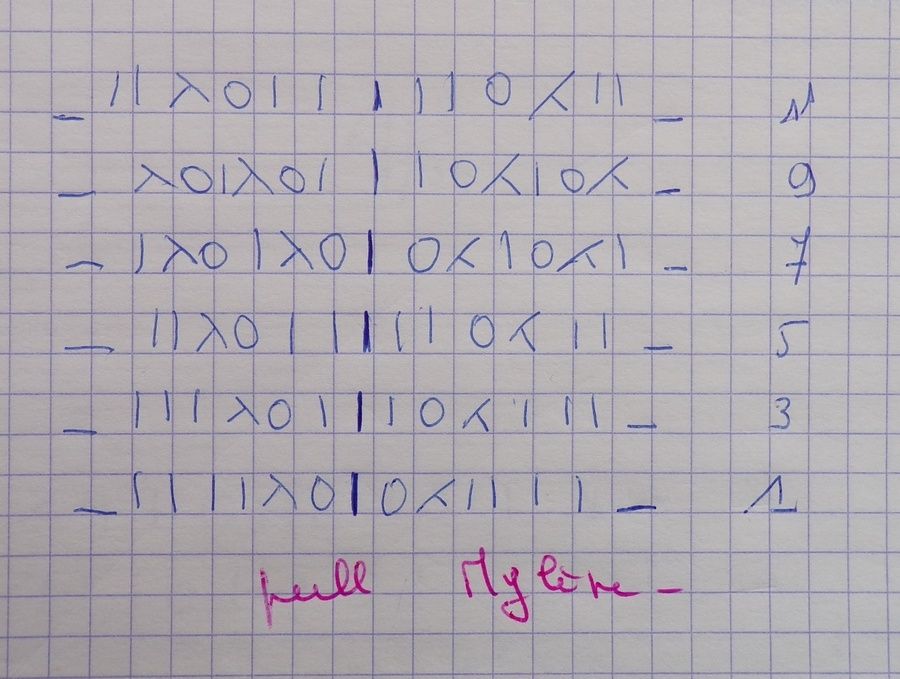 _ | | λ O | | | | | O ⋌ | | _ 11
_ λ O | λ O | | | O ⋌ | O ⋌ _ 9
_ | λ O | λ O | O ⋌ | O ⋌ | _ 7
_ | | λ O | | | | | O ⋌ | | _ 5
_ | | | λ O | | | O ⋌ | | | _ 3
_ | | | | λ O | O ⋌ | | | | _ 1
pull Mylène _